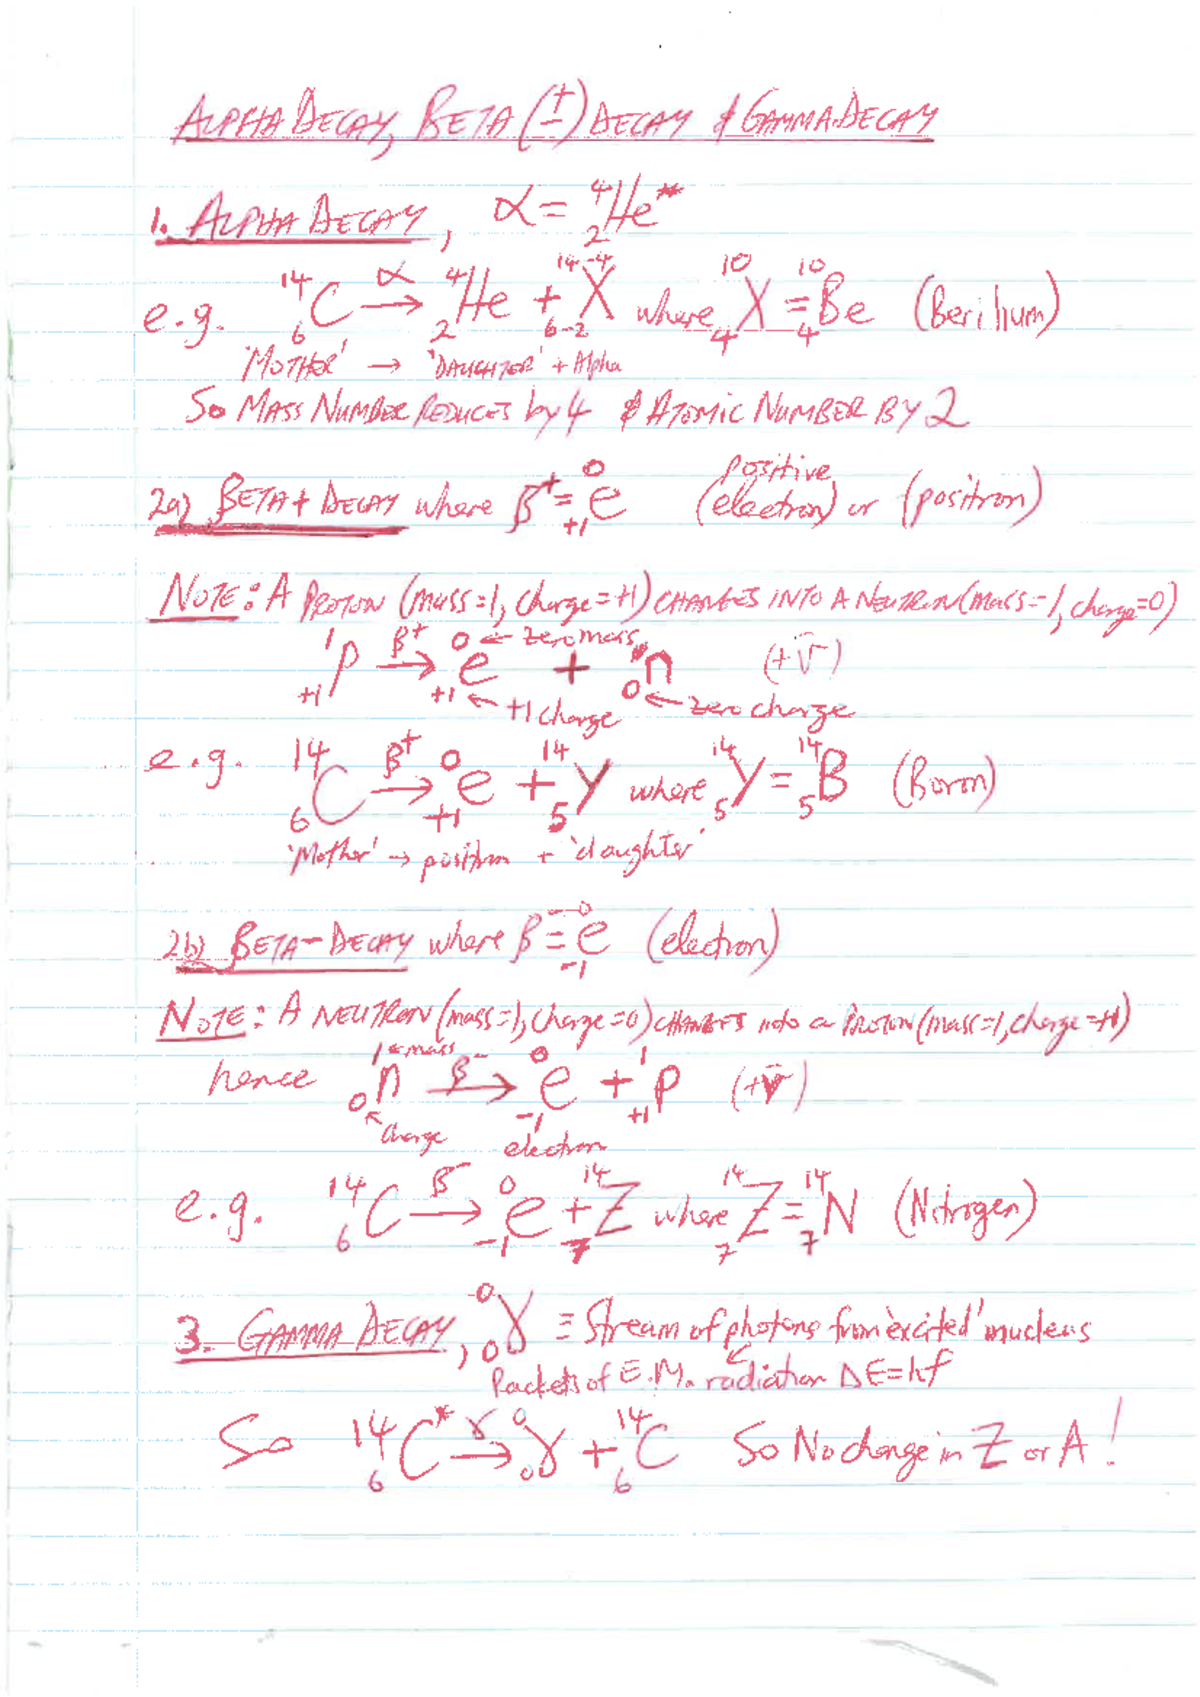 ALPHA DECAY, BETA (±) DECAY & GAMMA DECAY
1. ALPHA DECAY, α = ⁴₂He*
e.g. ¹⁴₆C →(α) ⁴₂He + ¹⁴⁻⁴₆₋₂X where ¹⁰₄X = ¹⁰₄Be (Berilium)
'MOTHER' → 'DAUGHTER' + Alpha
So MASS NUMBER REDUCES by 4 & ATOMIC NUMBER BY 2
2a) BETA + DECAY where β⁺ = ⁰₊₁e (positive electron) or (positron)
NOTE: A PROTON (mass=1, charge=+1) CHANGES INTO A NEUTRON (mass=1, charge=0)
¹₊₁p →(β⁺) ⁰₊₁e + ¹₀n (+ν̄)
0 ← zero mass
+1 ← +1 charge
0 ← zero charge
e.g. ¹⁴₆C →(β⁺) ⁰₊₁e + ¹⁴₅Y where ¹⁴₅Y = ¹⁴₅B (Boron)
'Mother' → positron + 'daughter'
2b) BETA - DECAY where β⁻ = ⁰₋₁e (electron)
NOTE: A NEUTRON (mass=1, charge=0) CHANGES into a PROTON (mass=1, charge=+1)
1 ← mass
hence ¹₀n →(β⁻) ⁰₋₁e + ¹₊₁p (+ν̄)
charge electron
e.g. ¹⁴₆C →(β⁻) ⁰₋₁e + ¹⁴₇Z where ¹⁴₇Z = ¹⁴₇N (Nitrogen)
3. GAMMA DECAY, ⁰₀γ ≡ Stream of photons from 'excited' nucleus
Packets of E.M. radiation ΔE=hf
So ¹⁴₆C* →(γ) ⁰₀γ + ¹⁴₆C So No change in Z or A!